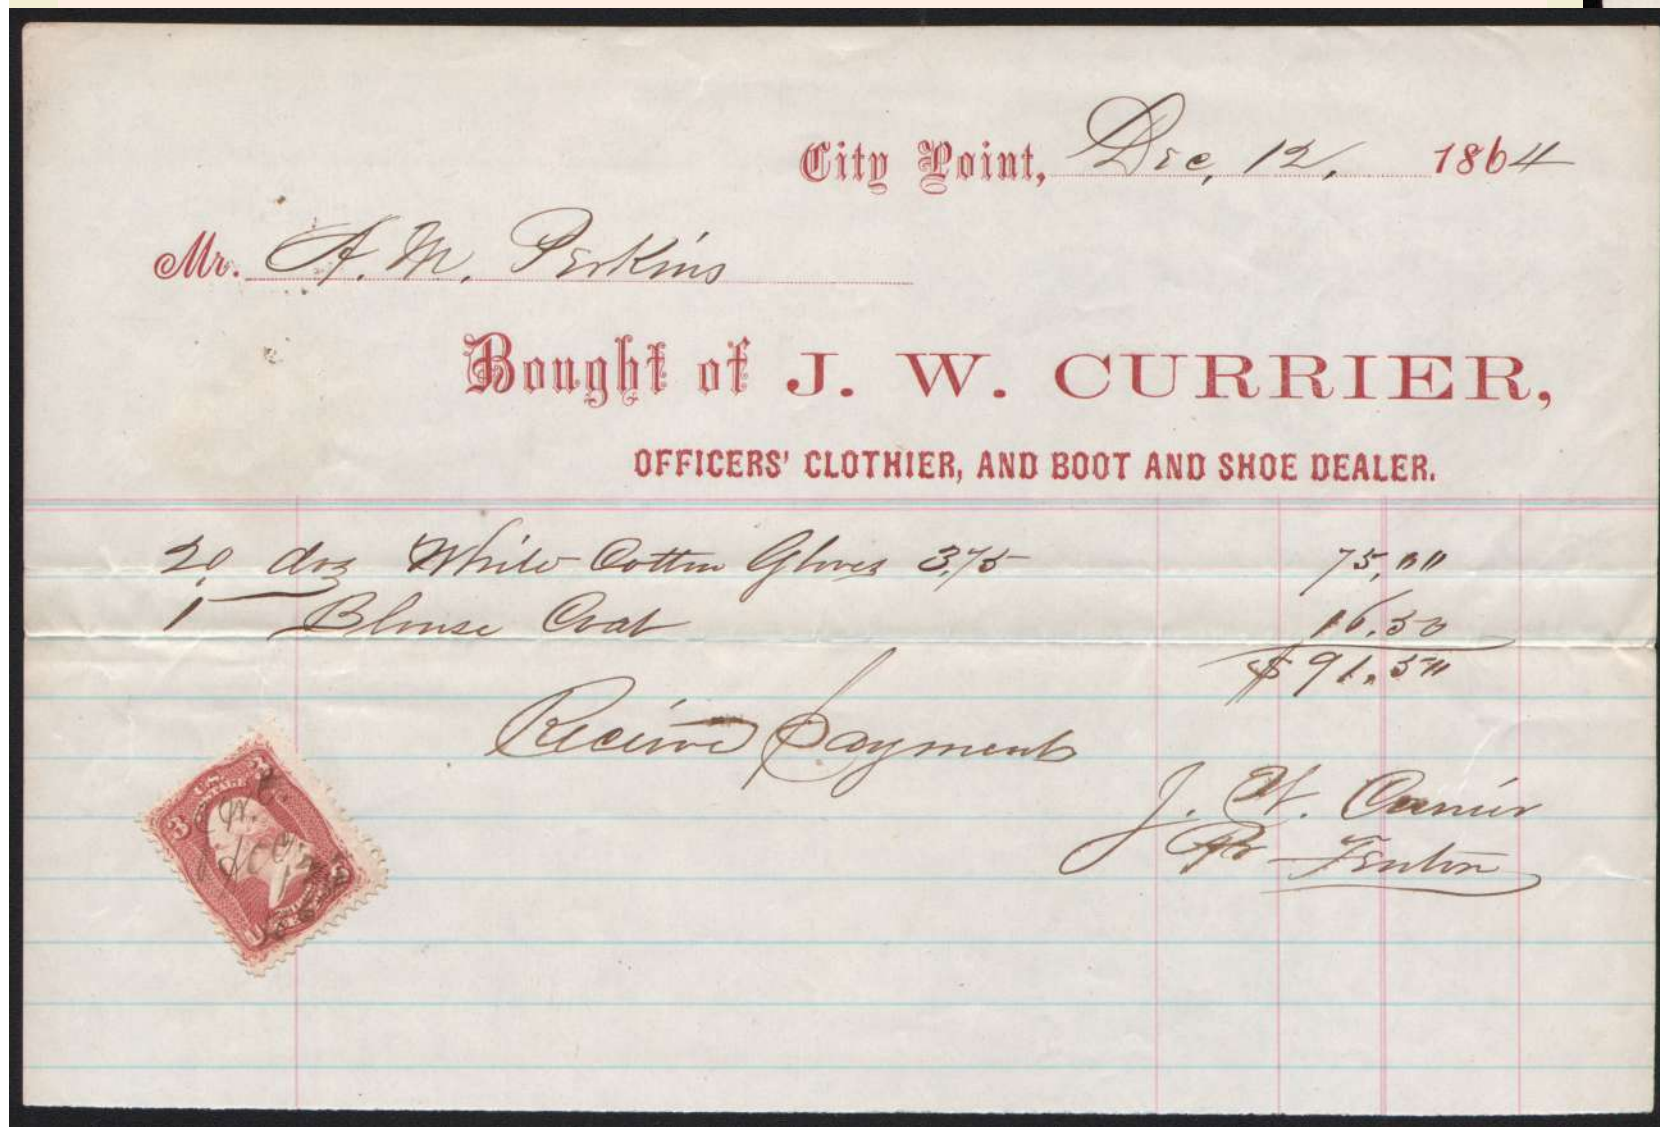 City Point, Dec, 12, 1864
Mr. A. M. Perkins
Bought of J. W. CURRIER,
OFFICERS' CLOTHIER, AND BOOT AND SHOE DEALER.
20 doz White Cotton Gloves 3,75 75,00
1 Blouse Coat 16.50
$91.50
Received payment
J. W. Currier
Pr Fenton
3 U.S. 3
J W. C.
Dec 12